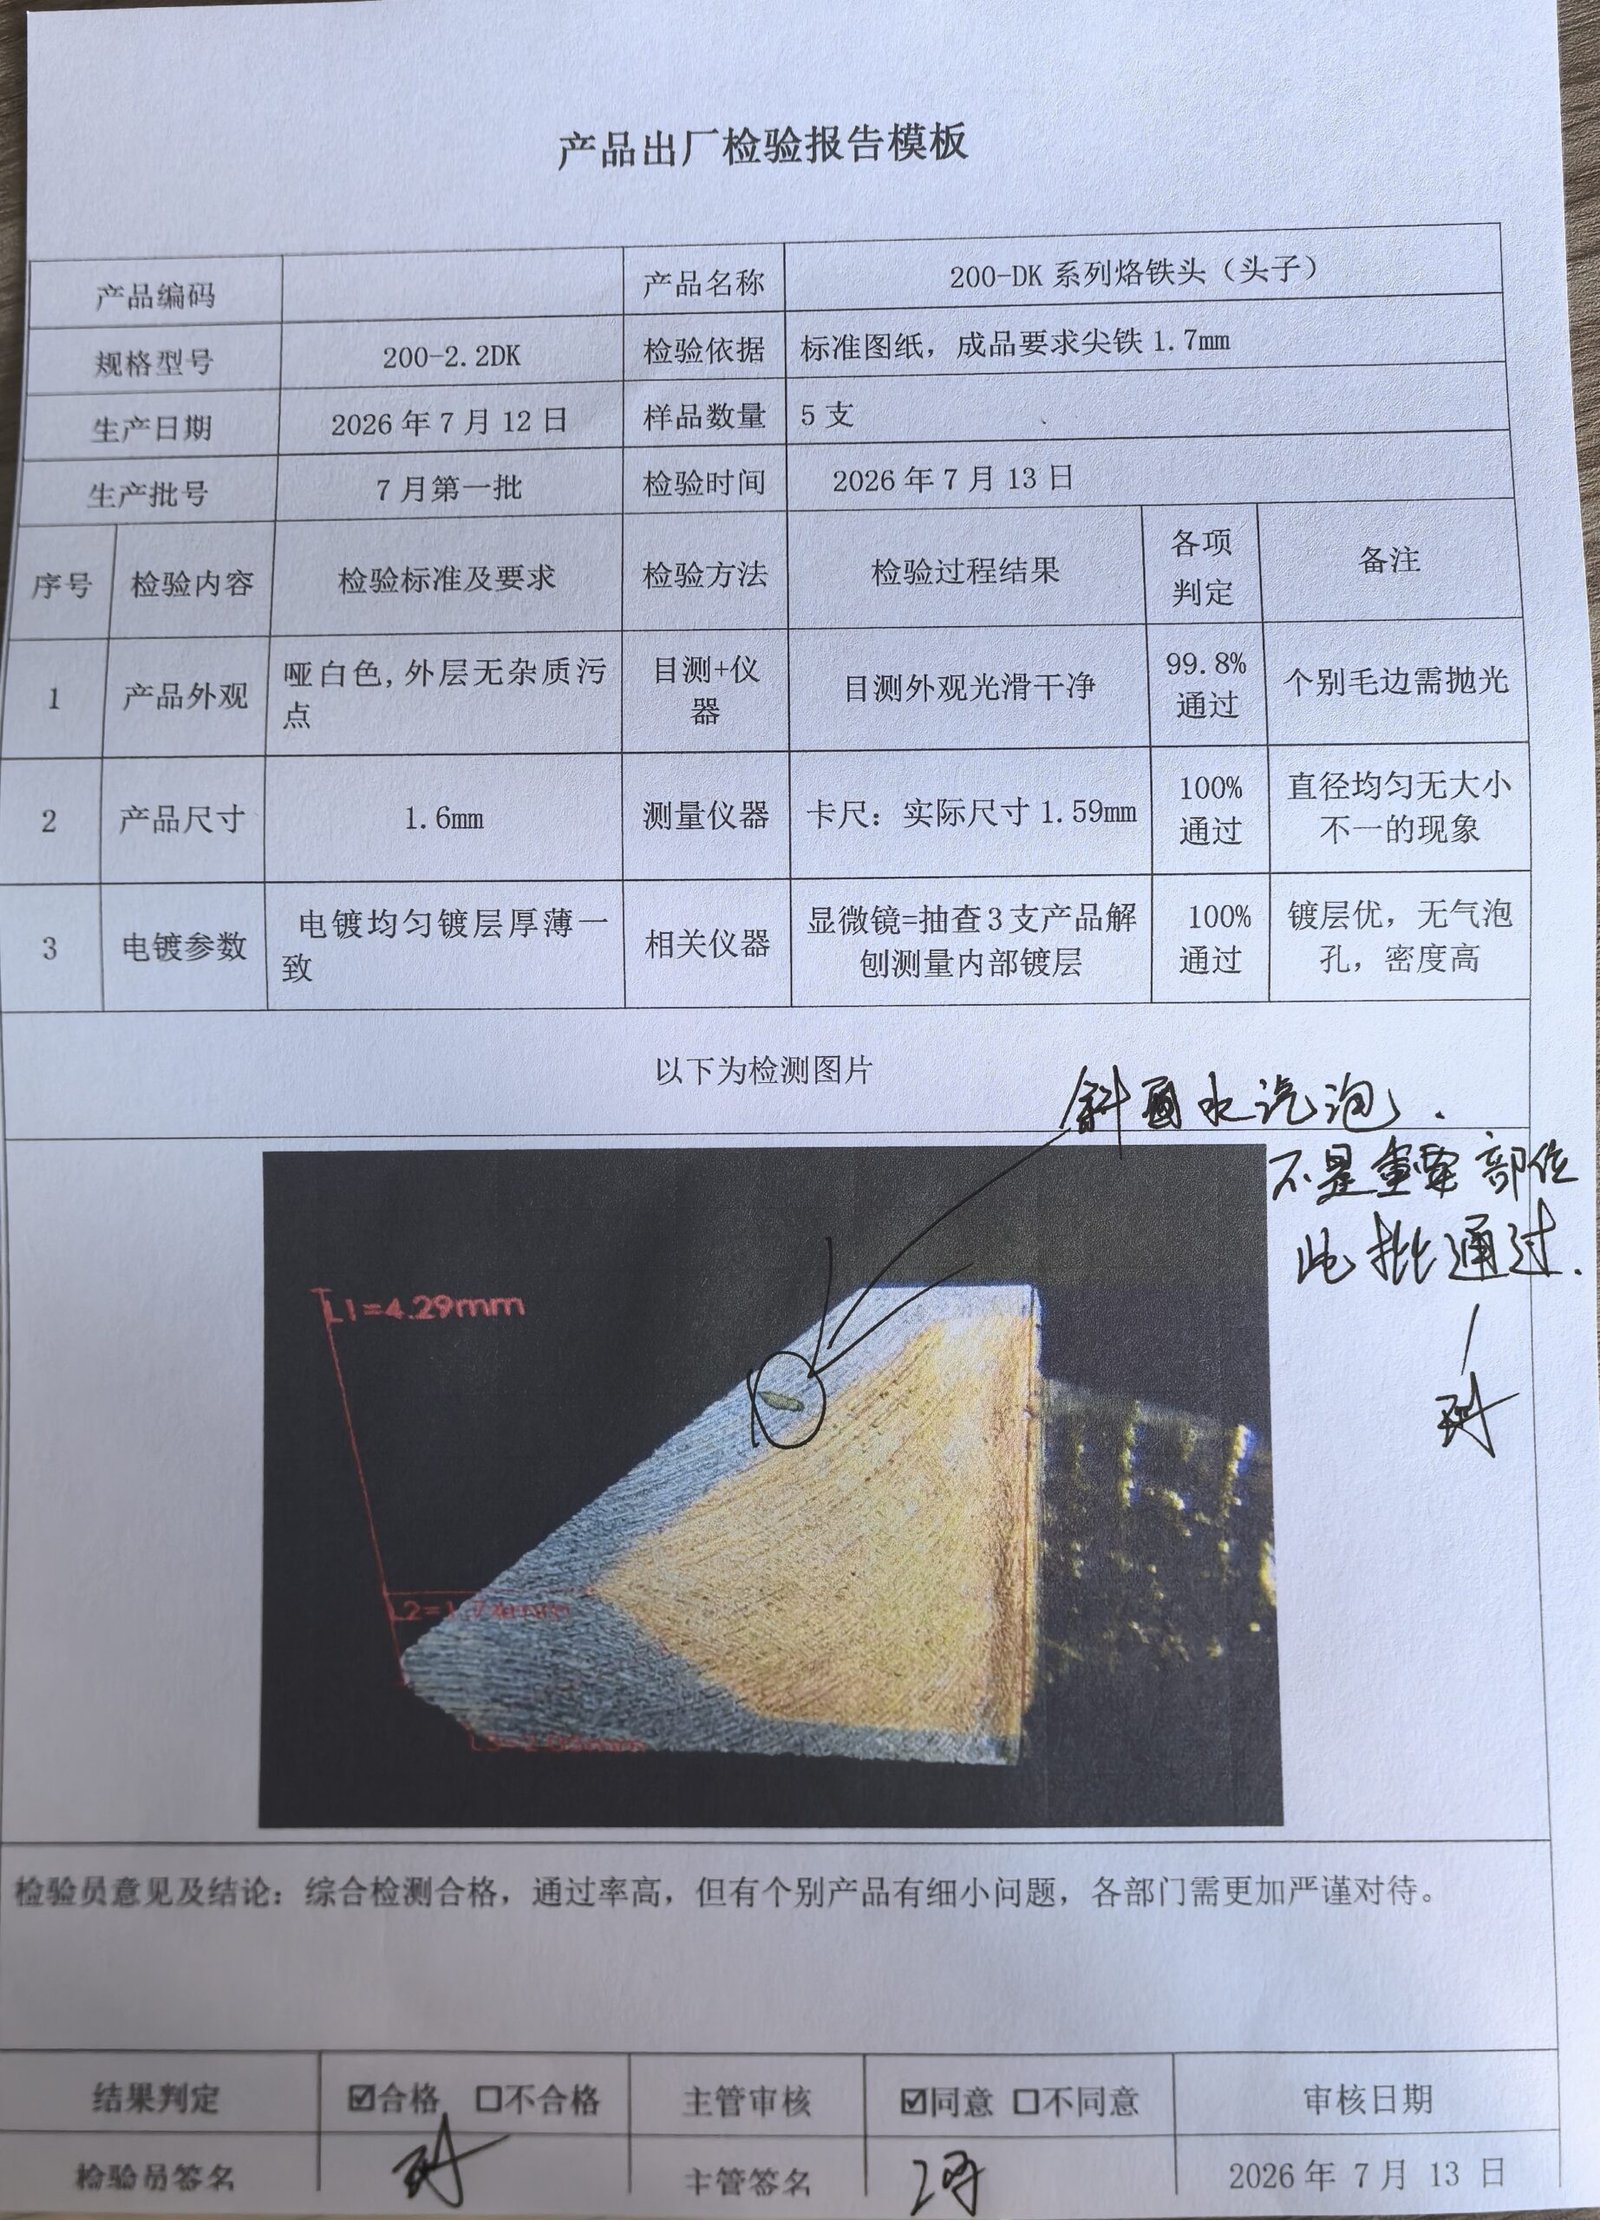 产品出厂检验报告模板
产品编码 产品名称 200-DK 系列烙铁头（头子）
规格型号 200-2.2DK 检验依据 标准图纸，成品要求尖铁 1.7mm
生产日期 2026 年 7 月 12 日 样品数量 5 支
生产批号 7 月第一批 检验时间 2026 年 7 月 13 日
序号 检验内容 检验标准及要求 检验方法 检验过程结果 各项
判定 备注
1 产品外观 哑白色,外层无杂质污
点 目测+仪
器 目测外观光滑干净 99.8%
通过 个别毛边需抛光
2 产品尺寸 1.6mm 测量仪器 卡尺：实际尺寸 1.59mm 100%
通过 直径均匀无大小
不一的现象
3 电镀参数 电镀均匀镀层厚薄一
致 相关仪器 显微镜=抽查 3 支产品解
刨测量内部镀层 100%
通过 镀层优，无气泡
孔，密度高
以下为检测图片
斜面水汽泡.
不是重要部位
此批通过.
L1=4.29mm
L2=1.74mm
检验员意见及结论：综合检测合格，通过率高，但有个别产品有细小问题，各部门需更加严谨对待。
结果判定 ☑合格 ☐不合格 主管审核 ☑同意 ☐不同意 审核日期
检验员签名 主管签名 2026 年 7 月 13 日